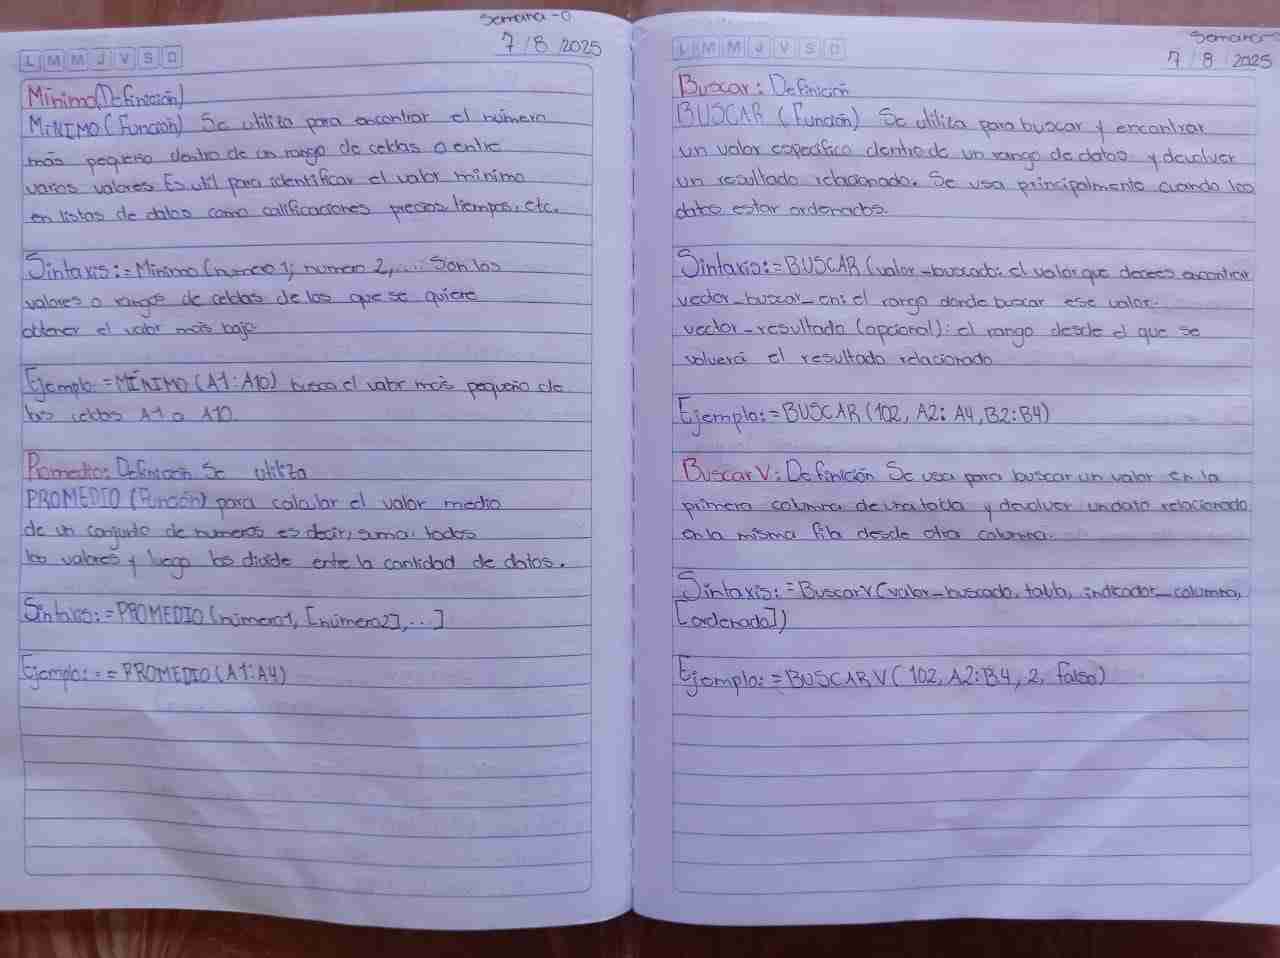 Semana-0
7/8/2025
L M M J V S D
Mínimo(Definición)
MíNIMO (Función) Se utiliza para encontrar el número
más pequeño dentro de un rango de celdas o entre
varios valores Es util para identificar el valor minimo
en listas de datos como calificaciones precios tiempos, etc.
Sintaxis:=Minimo (numero 1; numero 2,.... Son los
valores o rangos de celdas de los que se quiere
obtener el valor más bajo
Ejemplo:=MÍNIMO (A1:A10) busca el valor más pequeño de
las celdas A1 a A10.
Promedio: Definición Se utiliza
PROMEDIO (Función) para calcular el valor medio
de un conjunto de numeros es decir, suma todos
los valores y luego los divide ente la cantidad de datos.
Sintaxis:=PROMEDIO (número1, [número2],...]
Ejemplo:==PROMEDIO(A1:A4)
Semana-
7/8/2025
L M M J V S D
Buscar: Definición
BUSCAR (Función) Se utiliza para buscar y encontrar
un valor especifico dentro de un rango de datos y devolver
un resultado relacionado. Se usa principalmente cuando los
datos estar ordenados.
Sintaxis:=BUSCAR (valor_buscado: el valor que desees encontrar
vector_buscar_en: el rango donde buscar ese valor.
vector_resultado (opcional): el rango desde el que se
volverá el resultado relacionado
Ejemplo:=BUSCAR (102, A2:A4, B2:B4)
Buscar V: Definición Se usa para buscar un valor en la
primera columna de una tabla y devolver un dato relacionado
en la misma fila desde otra columna.
Sintaxis:=BuscarV (valor_buscado, tabla, indicador_columna,
[ordenado])
Ejemplo:=BUSCAR V (102, A2:B4, 2, Falso)